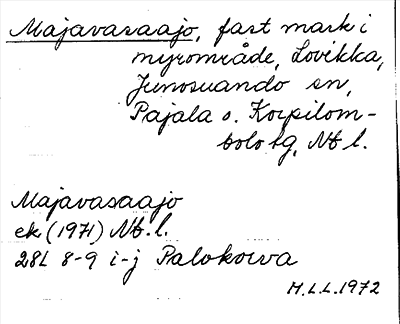 Majavasaajo, fast mark i
myrområde, Lovikka,
Junosuando sn,
Pajala o. Korpilom-
bolo tg, Nb l.
Majavasaajo
ek (1971) Nb. l.
28L 8-9 i-j Palokorva
H.L.L. 1972